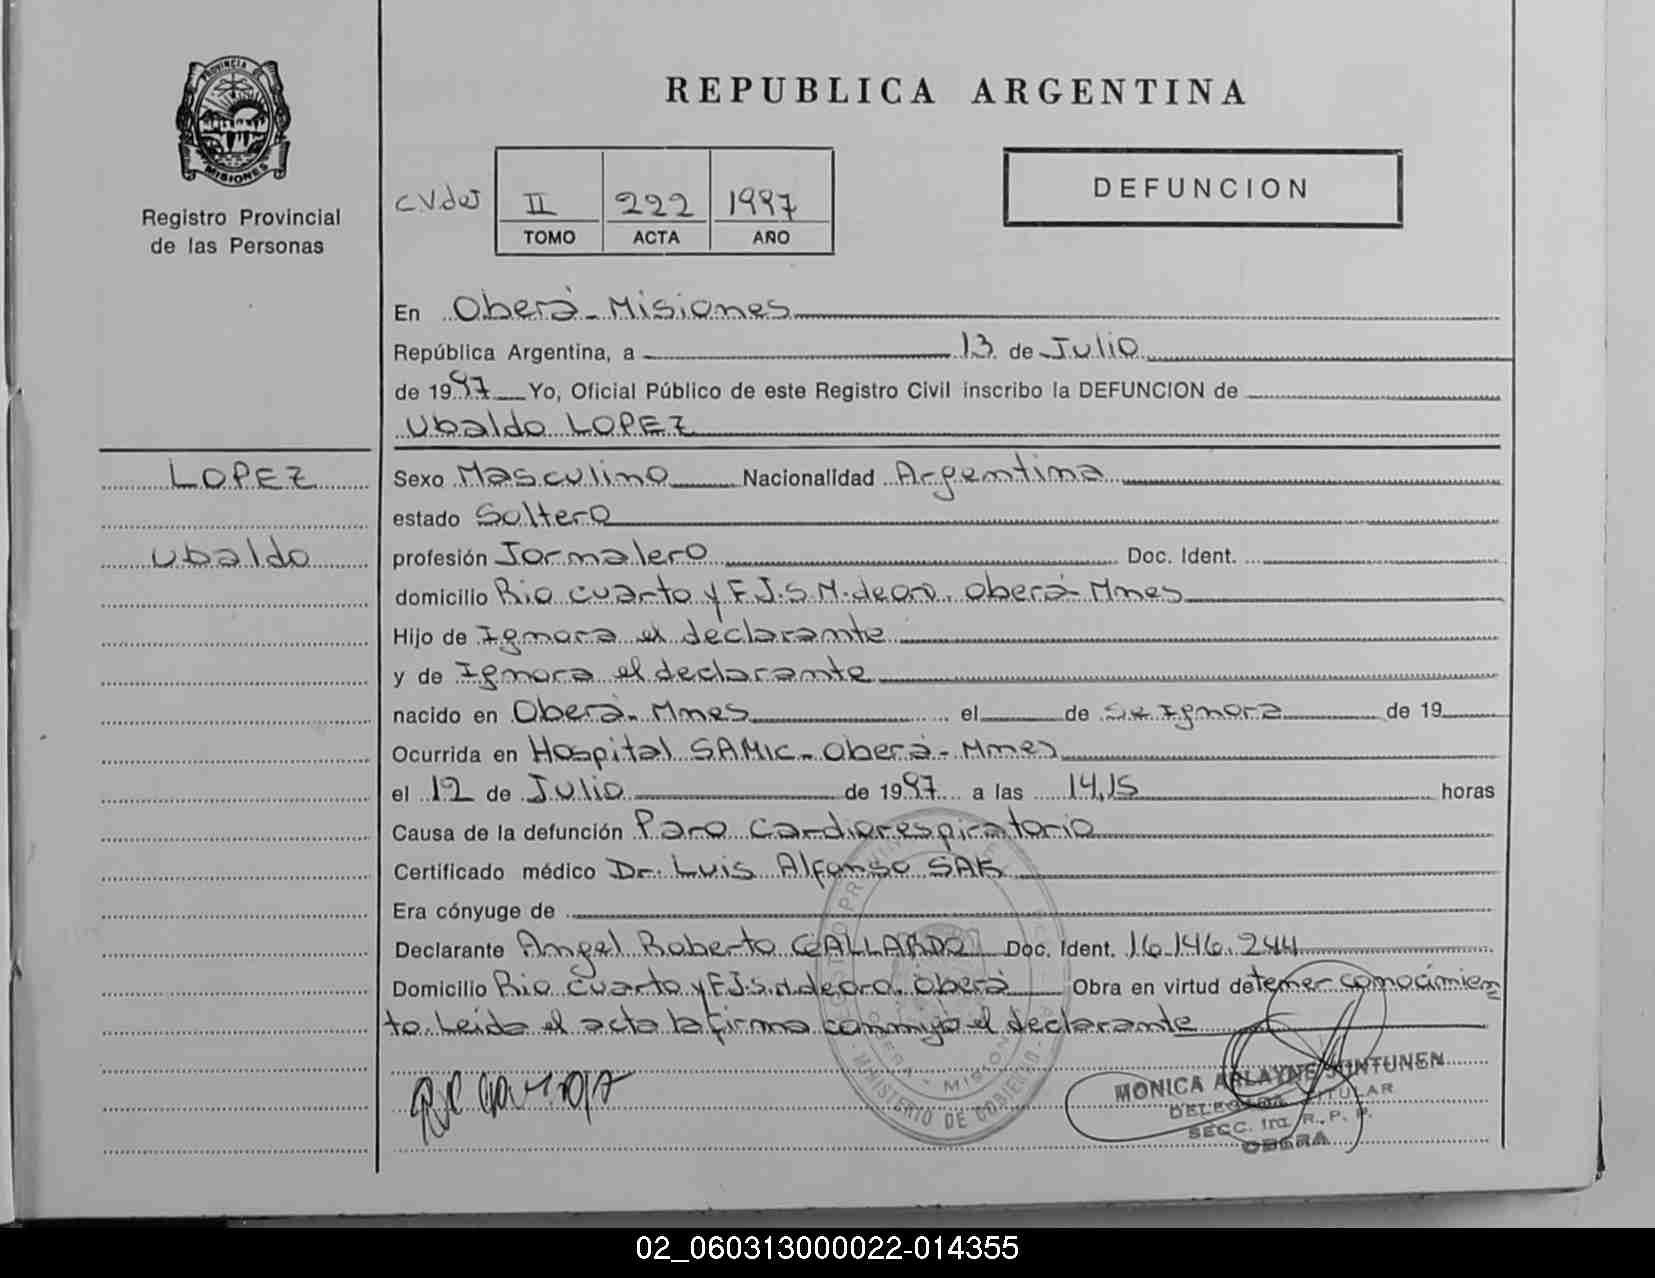 PROVINCIA DE
MISIONES
Registro Provincial
de las Personas
REPUBLICA ARGENTINA
II 222 1997
TOMO ACTA AÑO
DEFUNCION
En Oberá - Misiones
República Argentina, a 13 de Julio
de 1997 Yo, Oficial Público de este Registro Civil inscribo la DEFUNCION de
Ubaldo LOPEZ
LOPEZ
Ubaldo
Sexo Masculino Nacionalidad Argentina
estado Soltero
profesión Jornalero Doc. Ident.
domicilio Rio cuarto y F.J.S.M. de oro. oberá - Mnes
Hijo de Ignora el declarante
y de Ignora el declarante
nacido en Oberá - Mnes el de Se Ignora de 19
Ocurrida en Hospital SAMIC - Oberá - Mnes
el 12 de Julio de 1997 a las 14,15 horas
Causa de la defunción Paro Cardiorespiratorio
Certificado médico Dr. Luis Alfonso SAK
Era cónyuge de
Declarante Angel Roberto GALLARDO Doc. Ident. 16.146.244
Domicilio Rio Cuarto y F.J.S.M. de oro. Oberá Obra en virtud de tener conocimien
to. Leida el acta la firma conmigo el declarante
MINISTERIO DE GOBIERNO
OBERA - MISIONES
MONICA ARLAYNE JUNTUNEN
DELEGADA TITULAR
SECC. 1ra. R. P. P.
OBERA
02_060313000022-014355